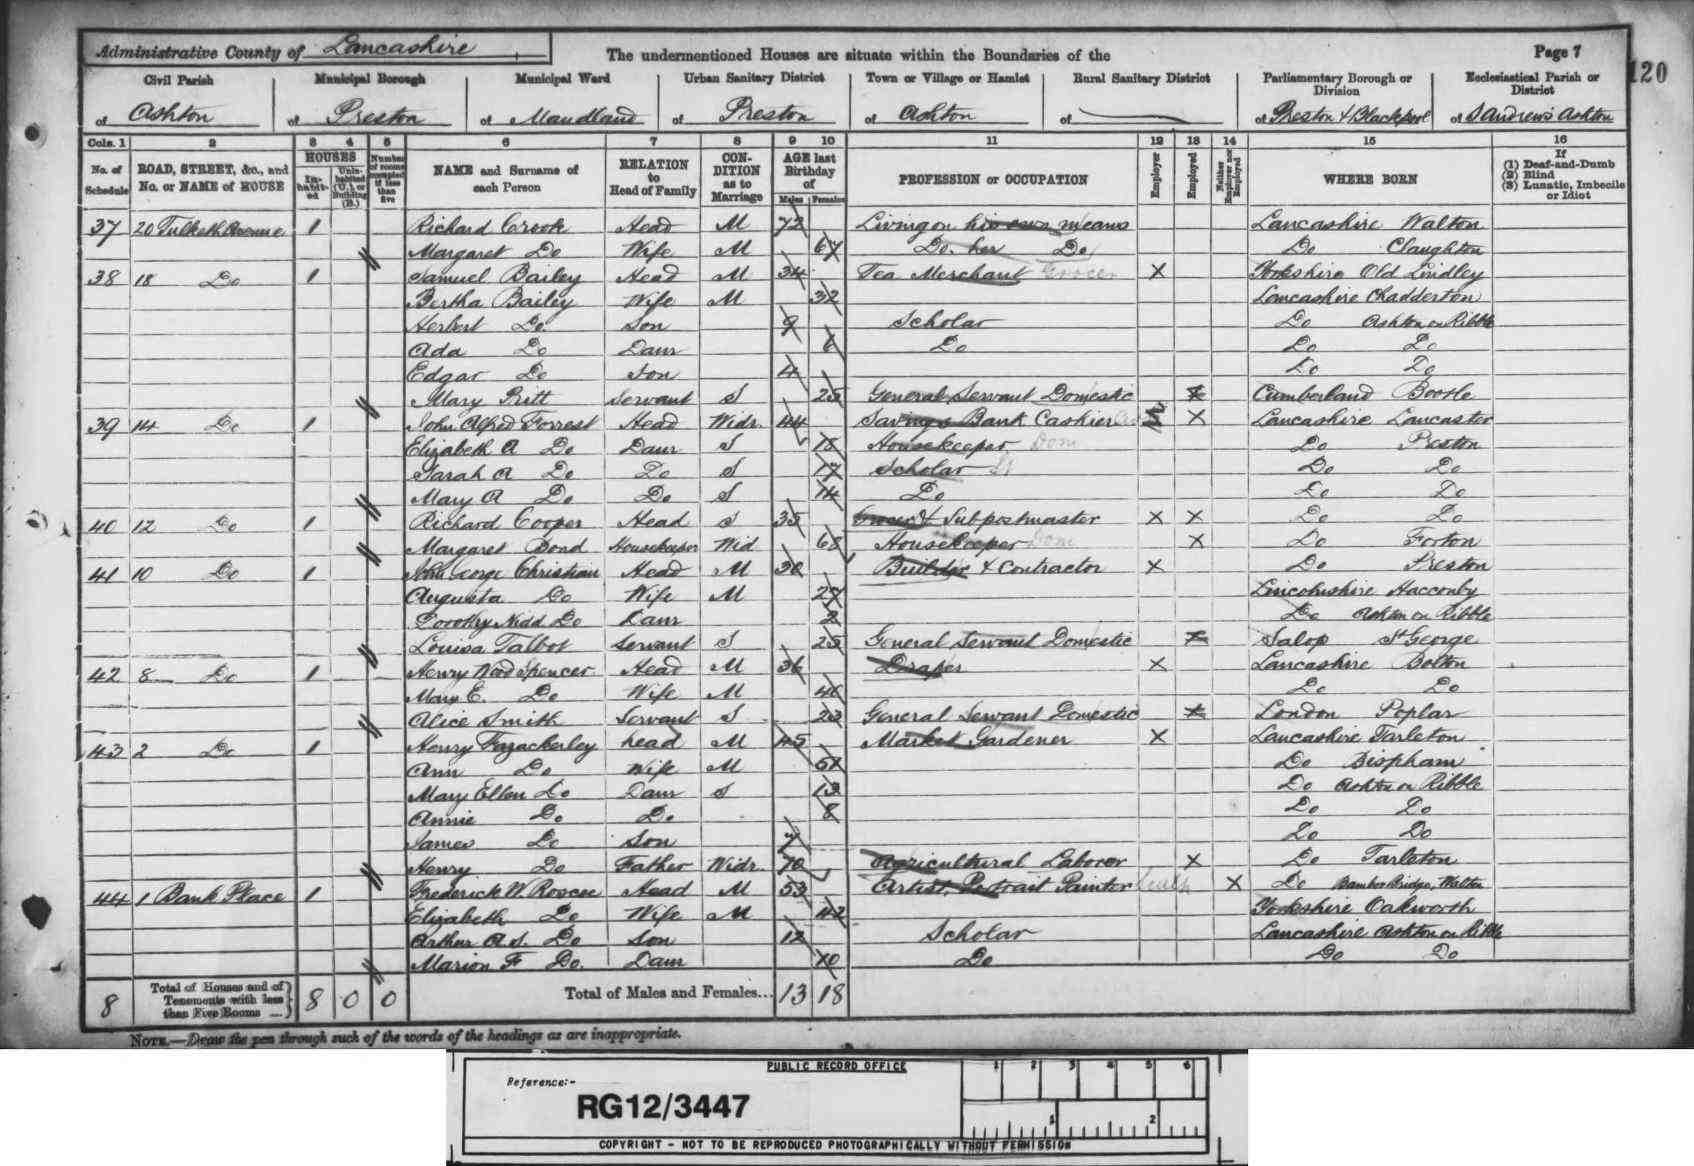 Administrative County of Lancashire The undermentioned Houses are situate within the Boundaries of the Page 7
120
Civil Parish Municipal Borough Municipal Ward Urban Sanitary District Town or Village or Hamlet Rural Sanitary District Parliamentary Borough or Division Ecclesiastical Parish or District
of Ashton of Preston of Maudland of Preston of Ashton of of Preston & Blackpool of S Andrews Ashton
Cols. 1 2 3 4 5 6 7 8 9 10 11 12 13 14 15 16
No. of Schedule ROAD, STREET, &c., and No. or NAME of HOUSE HOUSES In-habit-ed Unin-habited (U.) or Building (B.) Number of rooms occupied if less than five NAME and Surname of each Person RELATION to Head of Family CON-DITION as to Marriage AGE last Birthday of Males Females PROFESSION or OCCUPATION Employer Employed Neither Employer nor Employed WHERE BORN If (1) Deaf-and-Dumb (2) Blind (3) Lunatic, Imbecile or Idiot
37 20 Tulketh Avenue 1 Richard Crook Head M 72 Living on his own means Lancashire Walton
Margaret Do Wife M 67 Do her Do Do Claughton
38 18 Do 1 Samuel Bailey Head M 34 Tea Merchant Grocer X Yorkshire Old Lindley
Bertha Bailey Wife M 32 Lancashire Chadderton
Herbert Do Son 9 Scholar Do Ashton on Ribble
Ada Do Daur 6 Do Do Do
Edgar Do Son 4 Do Do
Mary Pritt Servant S 25 General Servant Domestic X Cumberland Bootle
39 14 Do 1 John Alfred Forrest Head Widr. 44 Savings Bank Cashier X Lancashire Lancaster
Elizabeth A Do Daur S 18 Housekeeper Dom Do Preston
Sarah A Do Do S 17 Scholar Do Do
Mary A Do Do S 14 Do Do Do
40 12 Do 1 Richard Cooper Head S 35 Grocer & Subpostmaster X X Do Do
Margaret Bond Housekeeper Wid 68 Housekeeper Dom X Do Forton
41 10 Do 1 John George Christian Head M 30 Builder & Contractor X Do Preston
Augusta Do Wife M 27 Lincolnshire Hacconby
Dorothy Nidd Do Daur 2 Do Ashton on Ribble
Louisa Talbot Servant S 25 General Servant Domestic X Salop St George
42 8 Do 1 Henry Wood Spencer Head M 36 Draper X Lancashire Bolton
Mary E. Do Wife M 40 Do Do
Alice Smith Servant S 23 General Servant Domestic X London Poplar
43 2 Do 1 Henry Fazackerley head M 45 Market Gardener X Lancashire Tarleton
Ann Do Wife M 51 Do Bispham
Mary Ellen Do Daur S 13 Do Ashton on Ribble
Annie Do Do 8 Do Do
James Do Son 7 Do Do
Henry Do Father Widr. 70 Agricultural Laborer X Do Tarleton
44 1 Bank Place 1 Frederick W. Roscoe Head M 53 Artist, Portrait Painter X Do Bamber Bridge, Walton
Elizabeth Do Wife M 42 Yorkshire Oakworth
Arthur A.S. Do Son 12 Scholar Lancashire Ashton on Ribble
Marion F Do. Daur 10 Do Do Do
8 Total of Houses and of Tenements with less than Five Rooms 8 0 0 Total of Males and Females... 13 18
NOTE.—Draw the pen through such of the words of the headings as are inappropriate.
PUBLIC RECORD OFFICE 1 2 3 4 5 6
Reference:-
RG12/3447
1 2
COPYRIGHT - NOT TO BE REPRODUCED PHOTOGRAPHICALLY WITHOUT PERMISSION